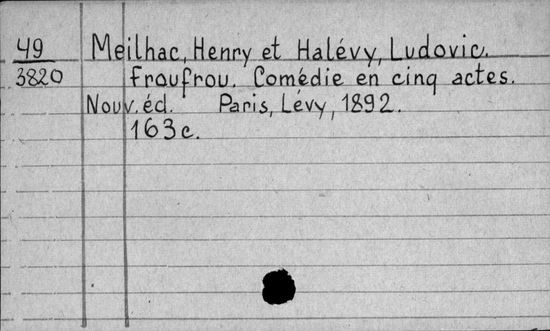 49 Meilhac, Henry et Halévy, Ludovic.
3820 Froufrou. Comédie en cinq actes.
Nouv. éd. Paris, Lévy, 1892.
163c.